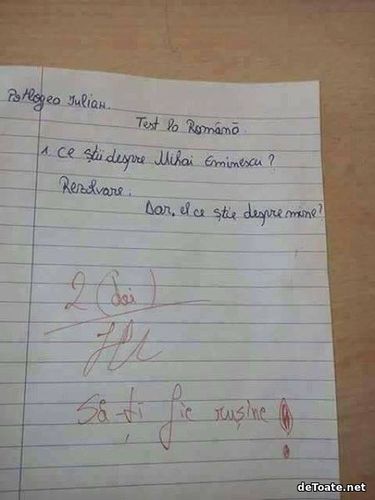 Potlogea Iulian.
Test la Română
1. Ce știi despre Mihai Eminescu?
Rezolvare:
Dar, el ce știe despre mine?
2 (doi)
Să-ți fie rușine!
deToate.net